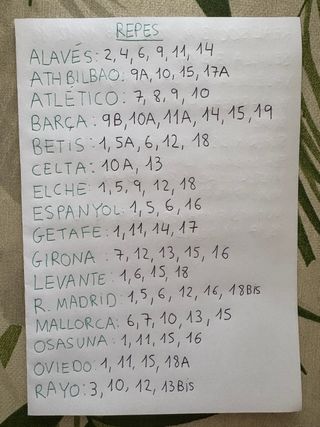 REPES
ALAVÉS: 2, 4, 6, 9, 11, 14
ATH BILBAO: 9A, 10, 15, 17A
ATLÉTICO: 7, 8, 9, 10
BARÇA: 9B, 10A, 11A, 14, 15, 19
BETIS: 1, 5A, 6, 12, 18
CELTA: 10A, 13
ELCHE: 1, 5, 9, 12, 18
ESPANYOL: 1, 5, 6, 16
GETAFE: 1, 11, 14, 17
GIRONA: 7, 12, 13, 15, 16
LEVANTE: 1, 6, 15, 18
R. MADRID: 1, 5, 6, 12, 16, 18Bis
MALLORCA: 6, 7, 10, 13, 15
OSASUNA: 1, 11, 15, 16
OVIEDO: 1, 11, 15, 18A
RAYO: 3, 10, 12, 13Bis